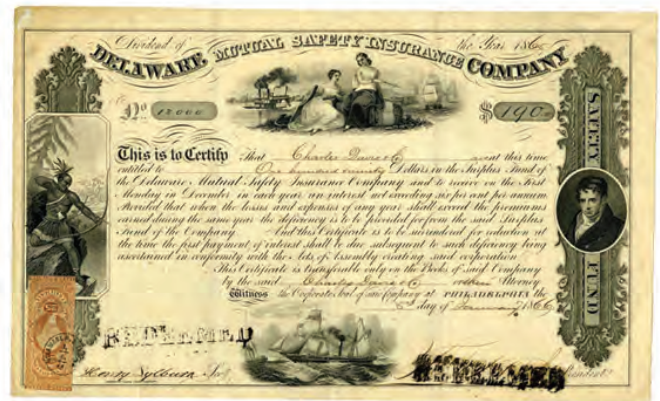 Dividend of the Year 1865
DELAWARE MUTUAL SAFETY INSURANCE COMPANY
No 12000 $190
This is to Certify That Charles Davis & Co at this time
entitled to One hundred ninety Dollars in the Surplus Fund of
the Delaware Mutual Safety Insurance Company and to receive on the First
Monday in December in each year an interest not exceeding six per cent per annum
Provided that when the losses and expenses of any year shall exceed the premiums
earned during the same year the deficiency is to be provided for from the said Surplus
Fund of the Company And this Certificate is to be surrendered for reduction at
the time the first payment of interest shall be due subsequent to such deficiency being
ascertained in conformity with the Acts of Assembly creating said corporation
This Certificate is transferable only on the Books of said Company
by the said Charles Davis & Co Attorney
Witness the Corporate Seal of said Company at PHILADELPHIA the
day of January 1866
SAFETY FUND
REDEEMED
Henry Sec
President